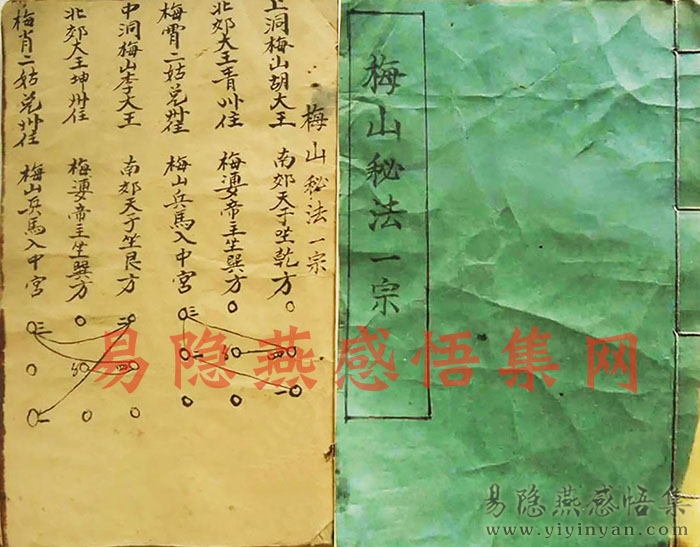 梅山秘法一宗
梅山秘法一宗
上洞梅山胡大王 南郊天子坐乾方
北郊大王青州住 梅婆帝主坐巽方
梅霄二姑兑州住 梅山兵馬入中宮
中洞梅山李大王 南郊天子坐艮方
北郊大王坤州住 梅婆帝主坐巽方
梅肖二姑兑州住 梅山兵馬入中宮
易隐燕感悟集网
易隐燕感悟集
www.yiyinyan.com